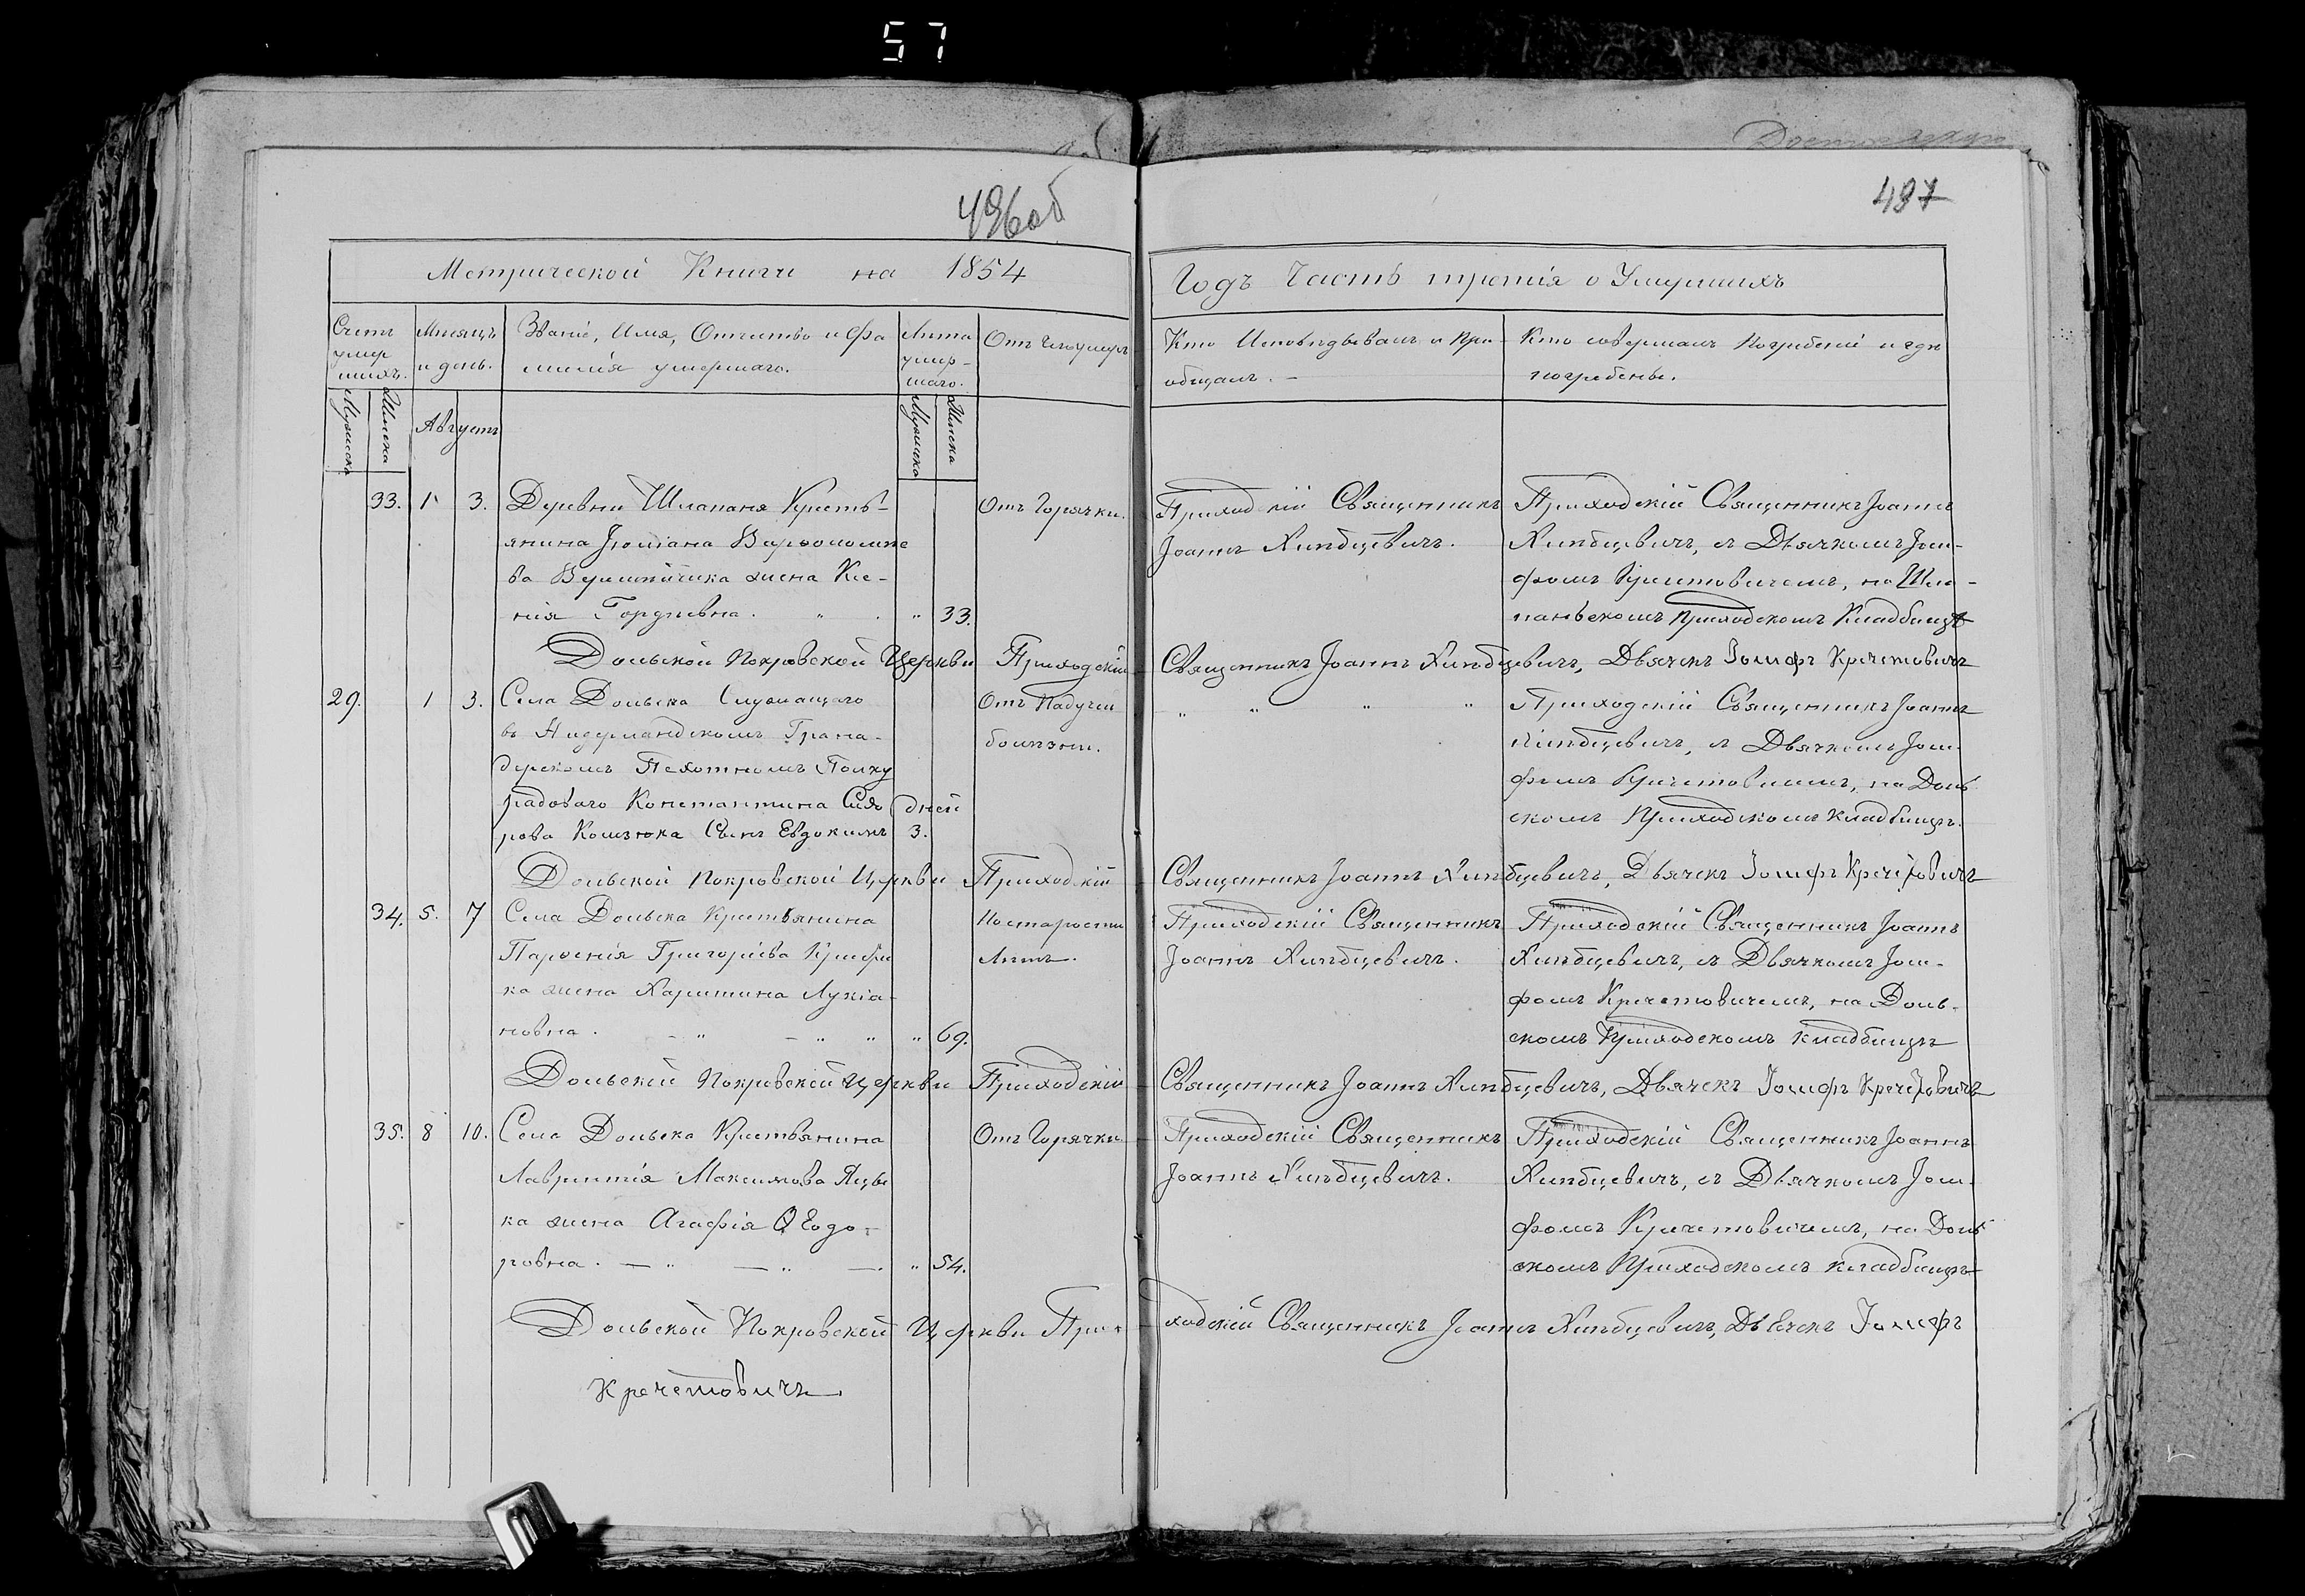 57
496об
497
Метрической Книги на 1854
Годъ Часть третія о Умершихъ
Счетъ умер шихъ.
Мужеска
Женска
Мѣсяцъ и день.
Званіе, Имя, Отчество и Фа
милія умершаго.
Лѣта умер- шаго.
Мужеска
Женска
Отъ чего умеръ
Кто Исповѣдывалъ и При-
общалъ. -
Кто совершалъ Погребеніе и гдѣ
погребены.
Августъ
33. 1 3. Деревни Шлапаня Крестъ-
янина Іюліана Варѳоломѣе
ва жена Ксе-
нія Гордѣевна. " . " 33.
Отъ Горячки.
Приходскій Священникъ
Іоаннъ Хлѣбцевичъ.
Приходскій Священникъ Іоаннъ
Хлѣбцевичъ, съ Дьячкомъ Іоси-
фомъ Кречетовичемъ, на Шла-
паньскомъ Приходскомъ Кладбищѣ
Дольской Покровской Церкви Приходскій Священникъ Іоаннъ Хлѣбцевичъ, Дьячекъ Іосифъ Кречетовичъ
29. 1 3. Села Дольска Служащего
въ Нидерландскомъ Грена-
дерскомъ Пехотномъ Полку
радоваго Константина Сидо
рова Комзюка Сынъ Евдокимъ
дней
3.
Отъ Падучей
болѣзни.
" " " "
Приходскій Священникъ Іоаннъ
Хлѣбцевичъ, съ Дьячкомъ Іоси-
фомъ Кречетовичемъ, на Доль
скомъ Приходскомъ Кладбищѣ.
Дольской Покровской Церкви Приходскій Священникъ Іоаннъ Хлѣбцевичъ, Дьячекъ Іосифъ Кречетовичъ
34. 5. 7 Села Дольска Крестьянина
Парѳенія Григоріева
ка жена Харитина Лукіа-
новна. - " - " " " 69.
По старости
Лѣтъ.
Приходскій Священникъ
Іоаннъ Хлѣбцевичъ.
Приходскій Священникъ Іоаннъ
Хлѣбцевичъ, съ Дьячкомъ Іоси-
фомъ Кречетовичемъ, на Доль-
скомъ Приходскомъ кладбищѣ
Дольской Покровской Церкви Приходскій Священникъ Іоаннъ Хлѣбцевичъ, Дьячекъ Іосифъ Кречетовичъ
35. 8 10. Села Дольска Крестьянина
Лаврентія Максимова Яцы
ка жена Агафія Ѳеодо-
ровна. — " — " —. " 54.
Отъ Горячки
Приходскій Священникъ
Іоаннъ Хлѣбцевичъ.
Приходскій Священникъ Іоаннъ
Хлѣбцевичъ, съ Дьячкомъ Іоси-
фомъ Кречетовичемъ, на Доль
скомъ Приходскомъ кладбищѣ
Дольской Покровской Церкви Приходскій Священникъ Іоаннъ Хлѣбцевичъ, Дьячекъ Іосифъ
Кречетовичъ